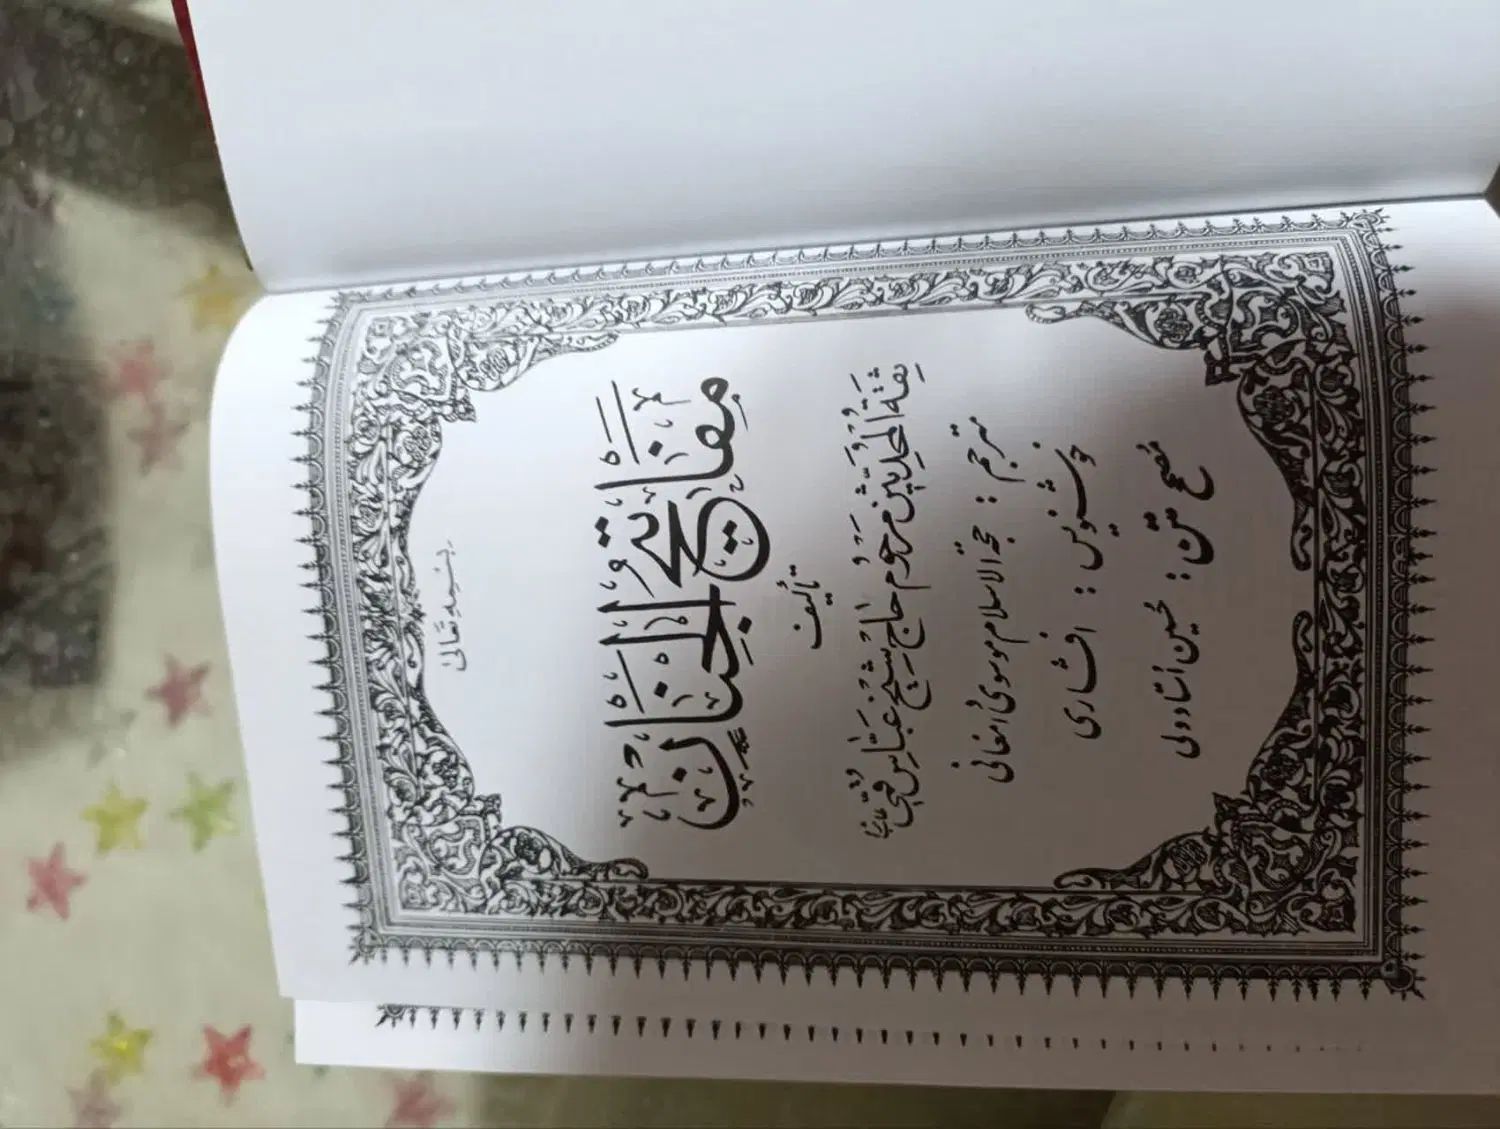 بسمه تعالی
مَفاتیحُ الجِنان
تألیف
ثِقَةُ المُحَدِّثین مرحوم حاج شیخ عَبّاس قمی
مترجم : حجة الاسلام موسوی دامغانی
خوشنویس : افشاری
مصحح متن : حُسین اُستادولی